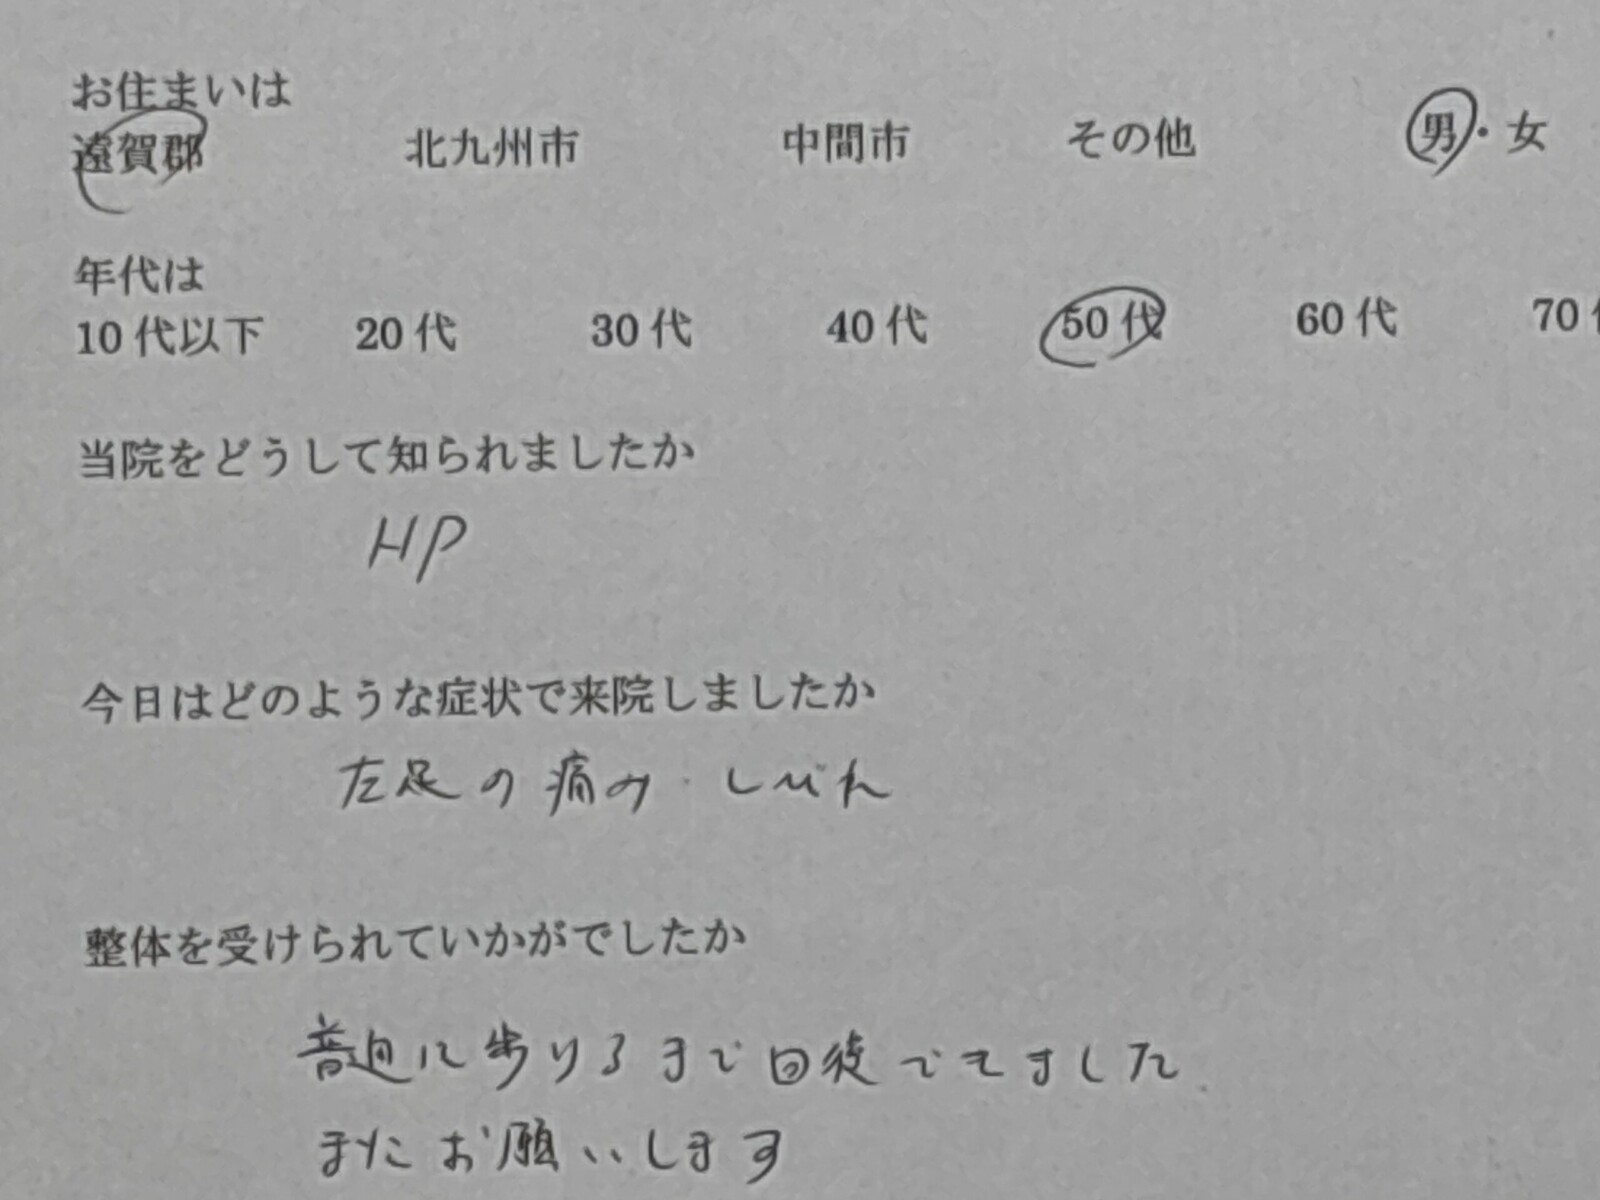 お住まいは
遠賀郡 北九州市 中間市 その他 男・女
年代は
10代以下 20代 30代 40代 50代 60代 70代
当院をどうして知られましたか
HP
今日はどのような症状で来院しましたか
左足の痛み・しびれ
整体を受けられていかがでしたか
普通に歩けるまで回復できました
またお願いします